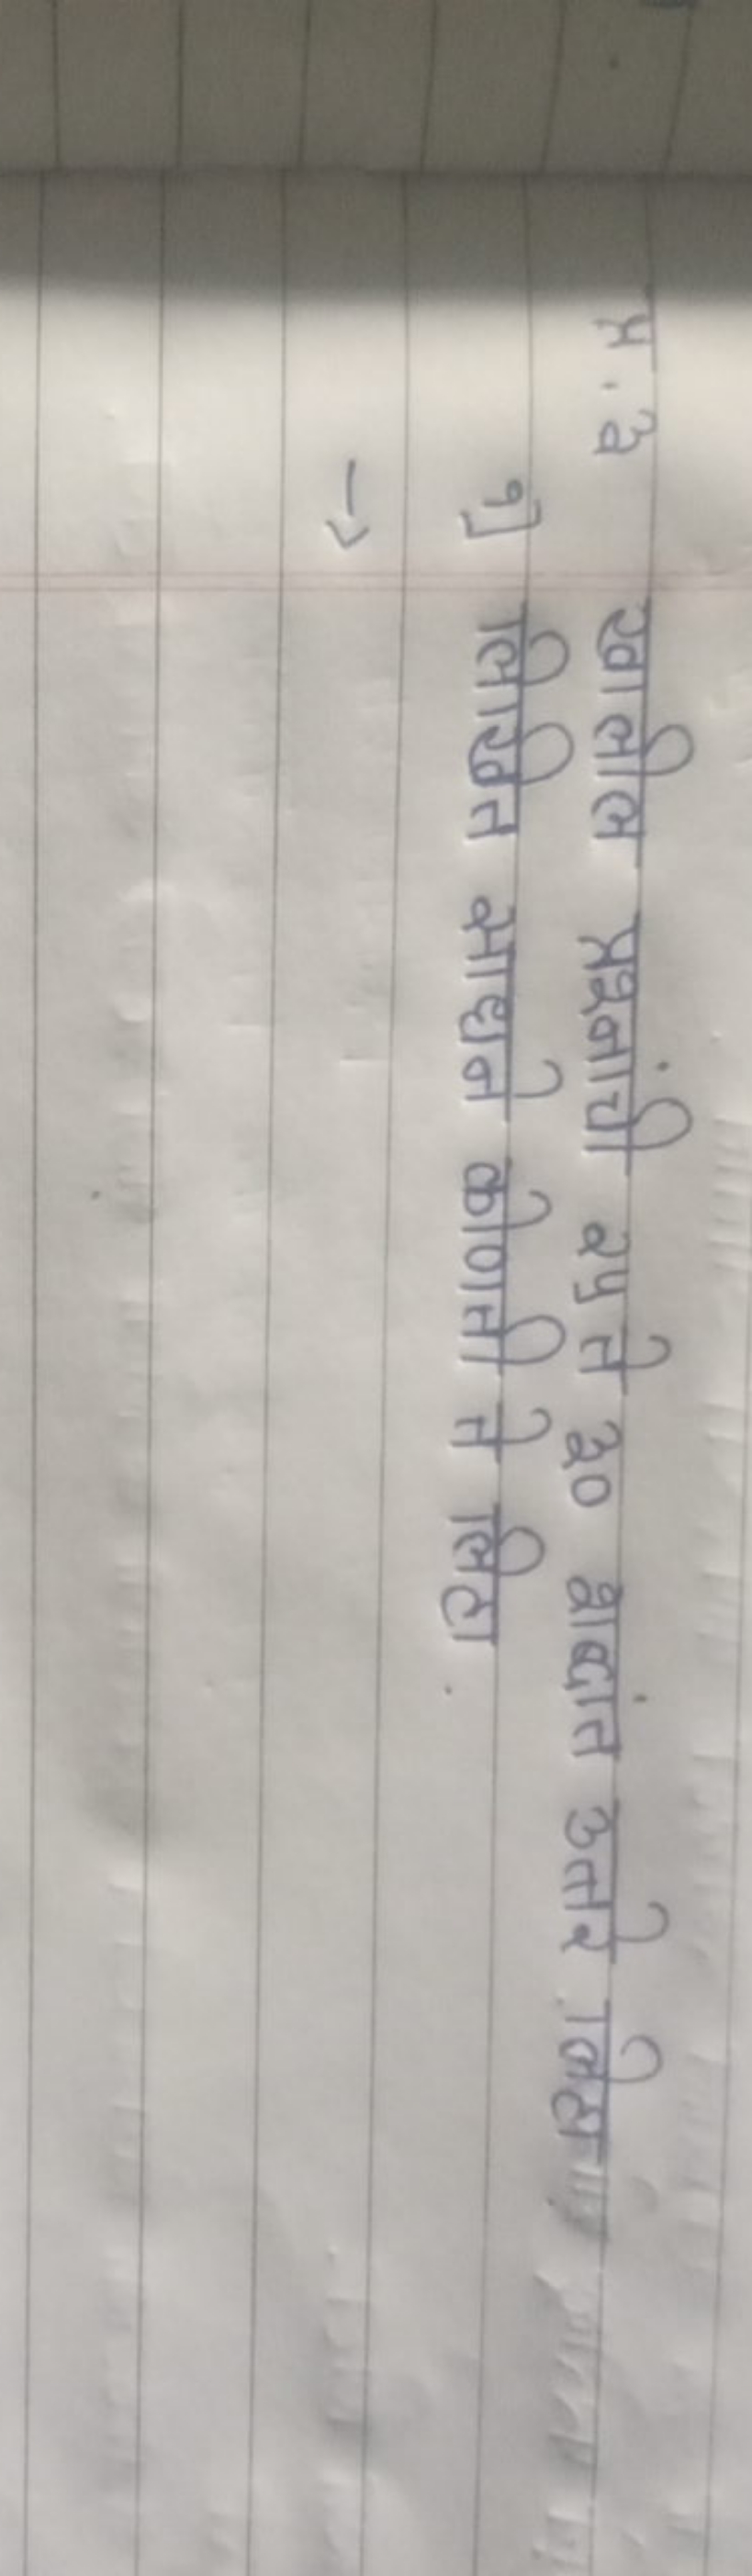 प्र. २ खालील प्रश्नांची २५ ते ३० शब्दांत उत्तरे लिहा
१] लिखित साधने कोणती ते लिहा.
→